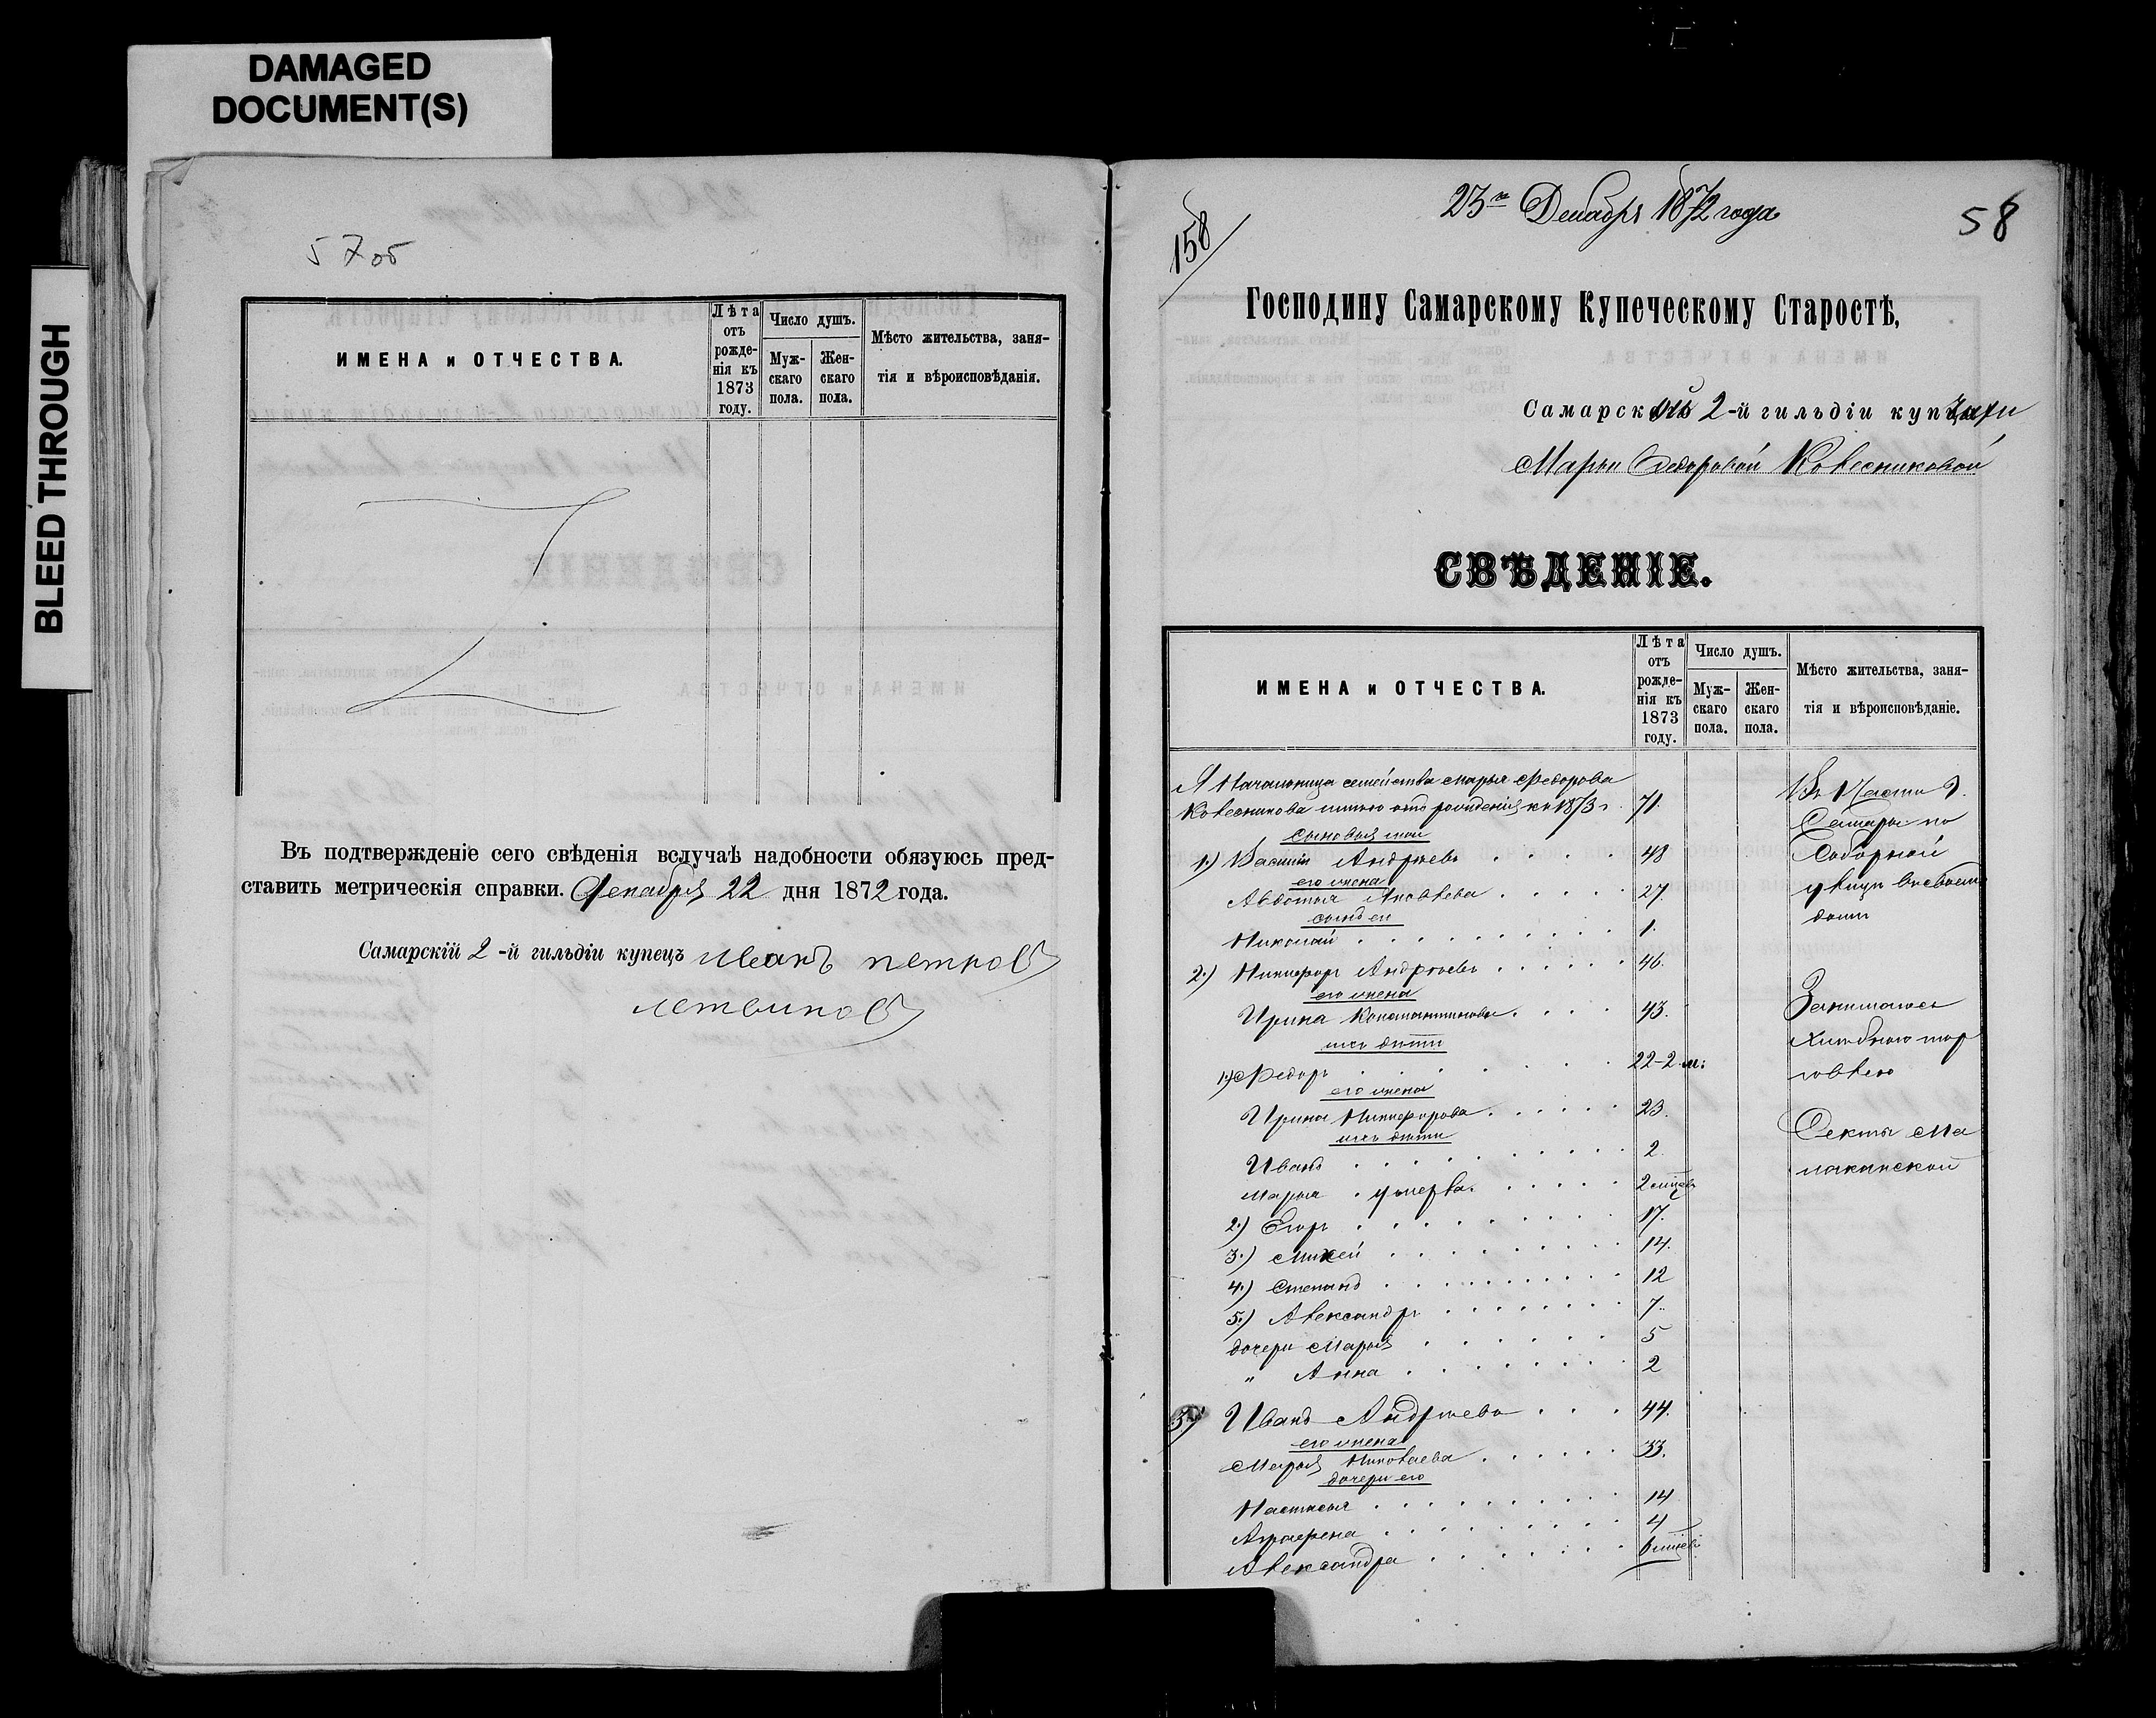 DAMAGED
DOCUMENT(S)
BLEED THROUGH
57об
ИМЕНА и ОТЧЕСТВА.
Лѣта отъ рожде-нія къ 1873 году.
Число душъ.
Муж-скаго пола.
Жен-скаго пола.
Мѣсто жительства, заня-
тія и вѣроисповѣданія.
Въ подтвержденіе сего свѣденія вслучаѣ надобности обязуюсь пред-
ставить метрическія справки. Декабря 22 дня 1872 года.
Самарскій 2-й гильдіи купецъ иванъ петровъ
158
23го Декабря 1872 года
58
Господину Самарскому Купеческому Старостѣ,
Самарской 2-й гильдіи купчихи
Марьи Федоровой Колесниковой
СВѢДЕНІЕ.
ИМЕНА и ОТЧЕСТВА.
Лѣта отъ рожде-нія къ 1873 году.
Число душъ.
Муж-скаго пола.
Жен-скаго пола.
Мѣсто жительства, заня-
тія и вѣроисповѣданіе.
Я Начальница семейства марья Федорова
Колесникова имѣю отъ рожденія къ 1873 г. 71.
сыновья мои
1.) Василій Андреевъ . . . . 48
его жена
Авдотья Яковлева . . . . . 27.
сынъ ея
Николай . . . . . . . . . 1.
2.) Никифоръ Андреевъ . . . . . 46.
его жена
Ирина Константинова . . . . 43.
ихъ дѣти
1.) Федоръ . . . . . . 22-2.м:
его жена
Ирина Никифорова . . . . . 23.
ихъ дѣти
Иванъ . . . . . . . . . 2
Марья . умерла . . . . . 2 мѣсяц
2.) Егоръ . . . . . . . . 17.
3.) Михей . . . . . . . . 14.
4.) Степанъ . . . . . . . . 12
5.) Александръ . . . . . . . 7.
дочери Марья . . . . . . 5
" Анна . . . . . . . 2
3) Иванъ Андреевъ . . . 44.
его жена
Марья Николаева . . . . . 33.
дочери его
Настасья . . . . . . . . 14
Аграфена . . . . . . . . 4
Александра . . . . . . 6 мѣсяц
Самары по
Соборной
улицы
доми
Занимаюсь
хлѣбною тор
говлею
Секты Ма
локанской